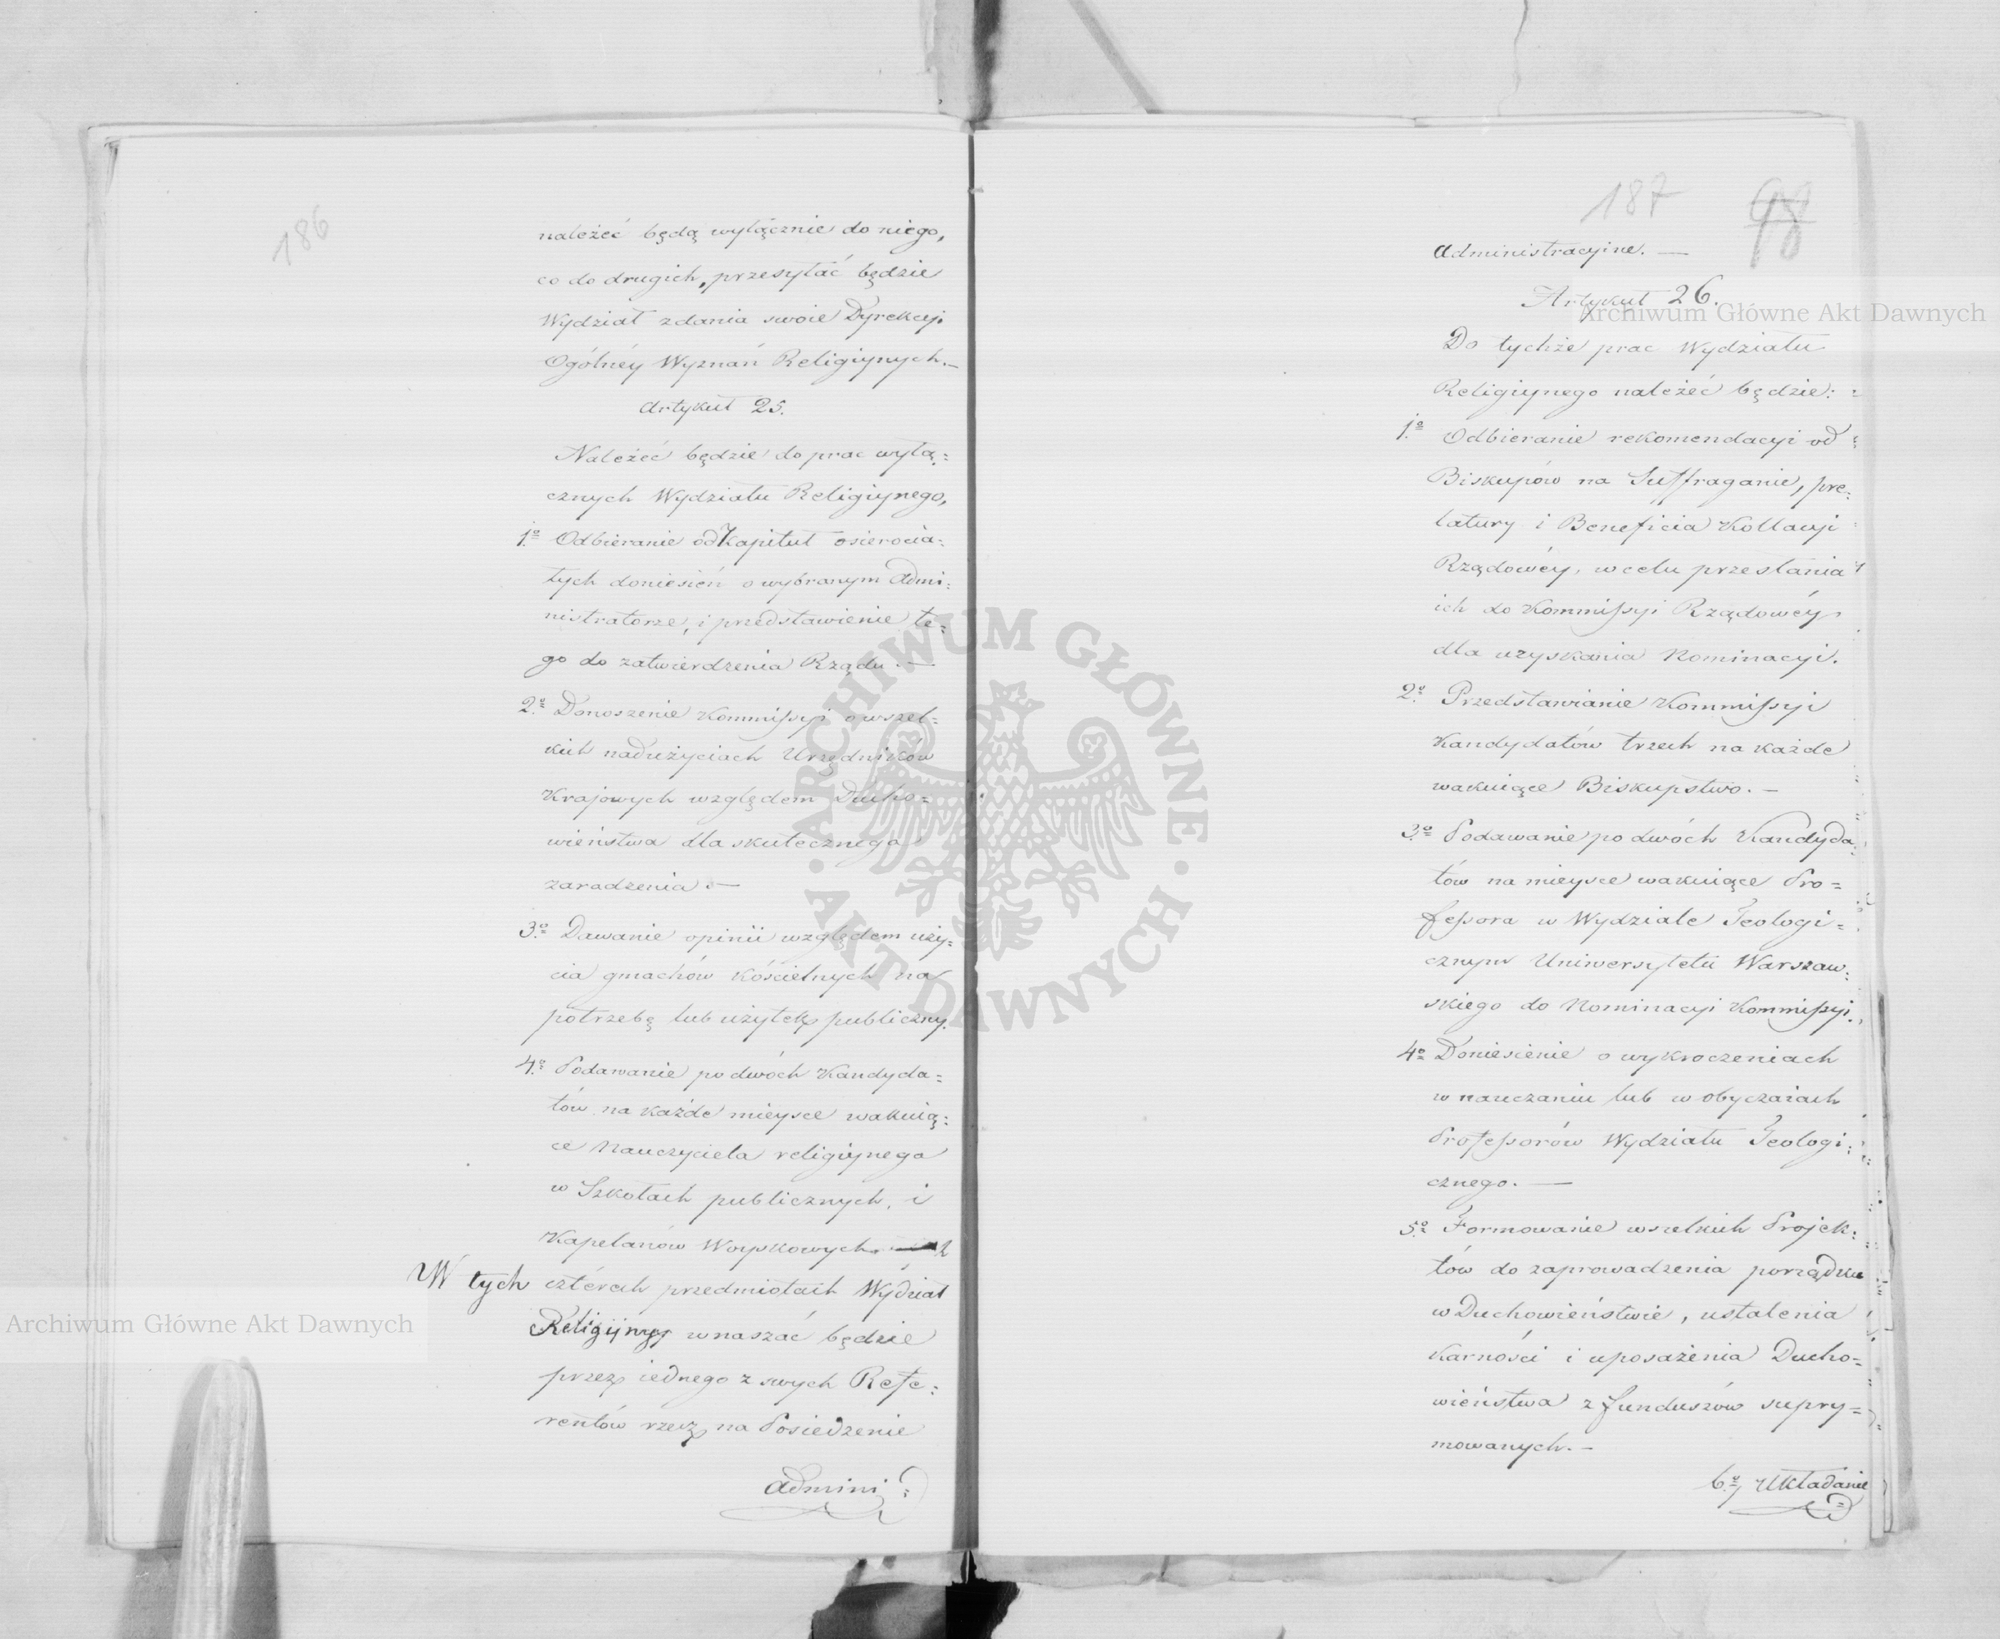 186
należeć będą wyłącznie do niego,
co do drugich, przesyłać będzie
Wydział zdania swoie Dyrekcyi
Ogólnéy Wyznań Religiynych.—
Artykuł 25.
Należeć będzie do prac wyłą:
cznych Wydziału Religiynego,
1.o Odbieranie od Kapituł osierocia:
łych doniesień o wybranym Admi:
nistratorze, i przedstawienie te:
go do zatwierdzenia Rządu.—
2.o Donoszenie Kommissyi o wszel:
kich nadużyciach Urzędników
Krajowych względem Ducho=
wieństwa dla skutecznego
zaradzenia.—
3.o Dawanie opinii względem uży:
cia gmachów kościelnych na
potrzebę lub użytek publiczny.
4.o Podawanie po dwóch Kandyda=
tów na każde mieysce wakuią:
ce Nauczyciela religiynego
w Szkołach publicznych, i
Kapelanów Woyskowych.—
W tych cztérech przedmiotach Wydział
Religijny wnaszać będzie
przez iednego z swych Refe:
rentów rzecz na Posiedzenie
Admini:
187 98
Administracyine.—
Artykuł 26.
Do tychże prac Wydziału
Religiynego należéć będzie:
1.o Odbieranie rekomendacyi od
Biskupów na Suffraganie, pre:
latury i Beneficia Kollacyi
Rządowéy, w celu przesłania
ich do Kommissyi Rządowéy
dla uzyskania Nominacyi.
2.o Przedstawianie Kommissyi
Kandydatów trzech na każde
wakuiące Biskupstwo.—
3.o Podawanie po dwóch Kandyda:
tów na mieysce wakuiące Pro=
fessora w Wydziale Teologi=
cznym Uniwersytetu Warszaw:
skiego do Nominacyi Kommissyi.
4.o Doniesienie o wykroczeniach
w nauczaniu lub w obyczaiach
Professorów Wydziału Teologi:
cznego.—
5.o Formowanie wszelkich Projek:
tów do zaprowadzenia porządku
w Duchowieństwie, ustalenia
karności i uposażenia Ducho=
wieństwa z funduszów supry=
mowanych.—
6.o Układanie
Archiwum Główne Akt Dawnych
Archiwum Główne Akt Dawnych
ARCHIWUM GŁÓWNE · AKT DAWNYCH ·